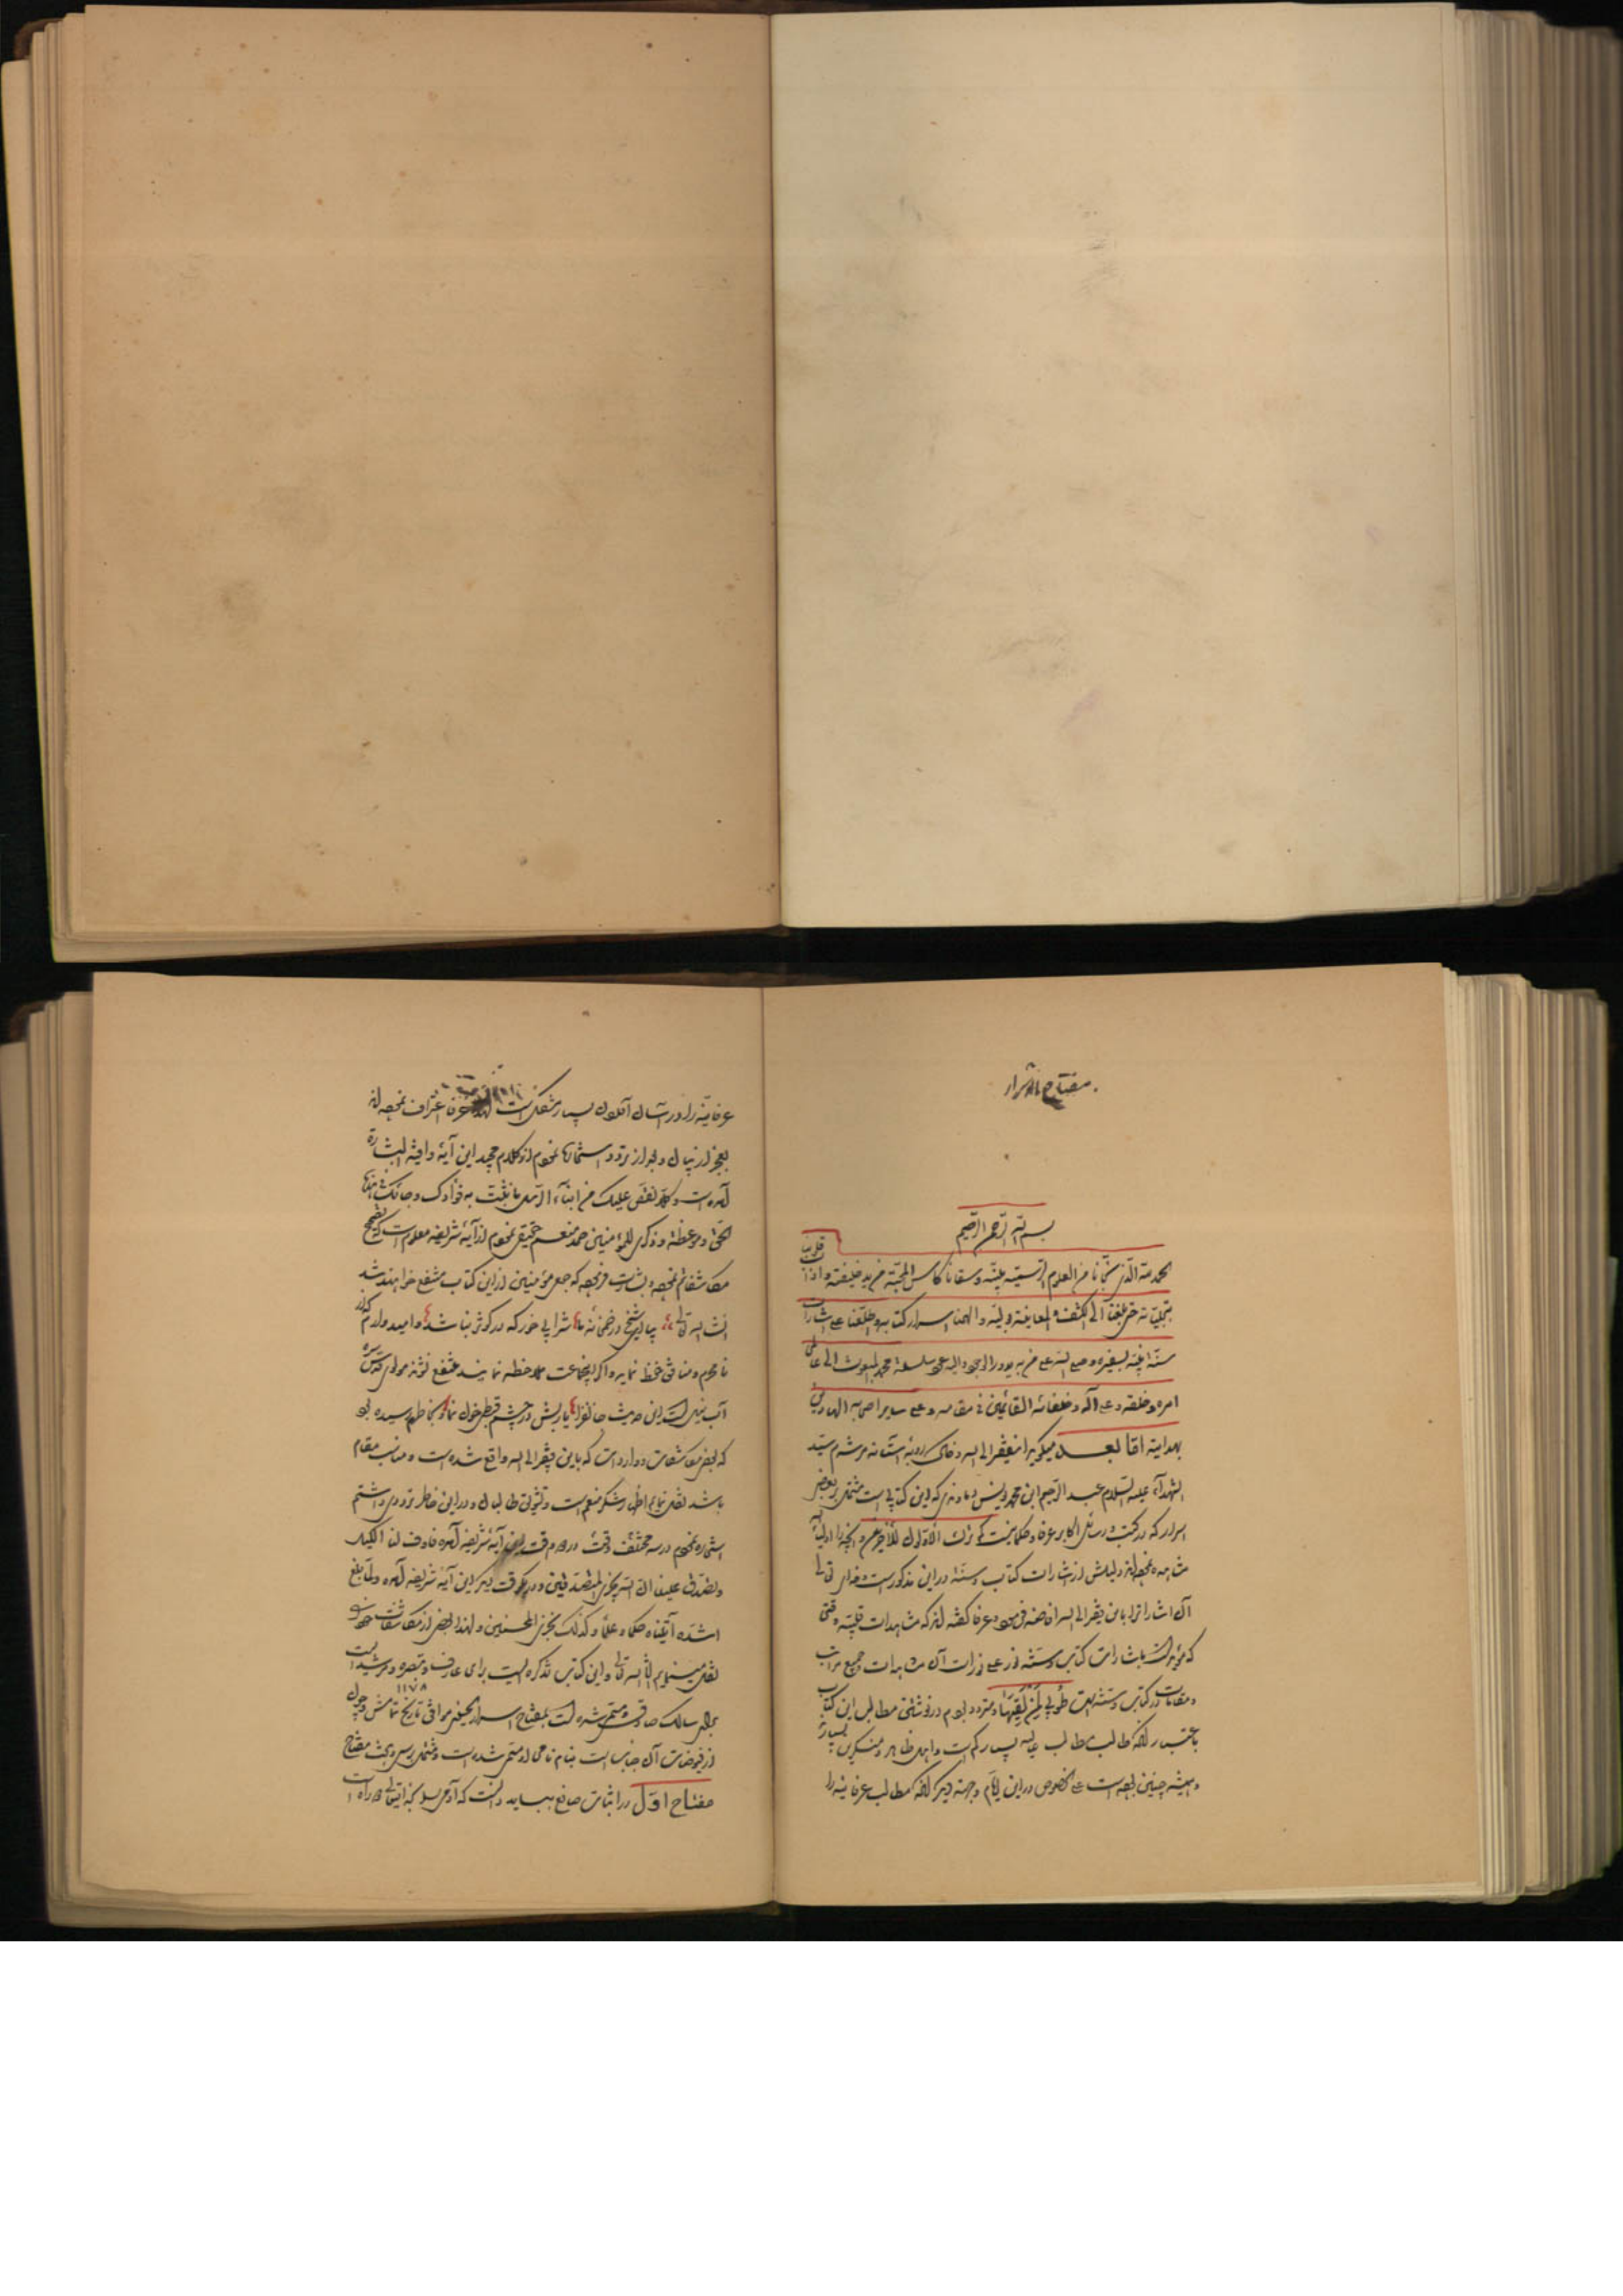 مفتاح الاسرار
بسم الله الرحمن الرحیم
قلوبنا
الحمد لله الذی نجّانا من العلوم الرسمیّه بمنّه و سقانا کأس المحبّة من ید خلیفته و اذا
بتجلیّاته حتی بلغنا الی الکشف و المعاینة و الهمنا اسرار کتابه و اطلعنا علی اشارات
سنّة نبیّه و صلی الله علی من به بدور الوجود الیه سلسلة محمد المبعوث الی
امره و خلقه و علی آله و خلفائه القائمین فی مقامه و علی سایر اصحابه الهادین
بهدایته اما بعد میگوید افقر الی الله و خاک روبه آستانه مرشدم سید
الشهدآء علیه السلام عبد الرحیم ابن محمد یونس دماوندی که این کتابی است مشتمل بر بعض
اسرار که در کتب و رسائل اکابر عرفا و حکما نیست کم ترک الاوّلون للآخرین و آنچه را اولیا
مشاهده نموده‌اند و لیلش از اشارات کتاب و سنّة در این مذکور است و خدای تعالی
آن اشاراترا باین فقیر الی الله افاضه فرموده و عرفا گفته‌اند که مشاهدات قلبیّه وقتی
که مؤید است باشارات کتاب و سنّته نور علی نور است آن مشاهدات و جمیع مراتب
و مقامات در کتاب و سنّته است طوبی لمن یفقهها و متردد بودم در نوشتن مطالب این کتاب
باعتبار آنکه طالب مطالب عالیه بسیار کم است و اهل ظاهر و منکرین بسیار
و همیشه چنین بوده است علی الخصوص در این ایّام وجهة دیگر آنکه مطالب عرفانیه را
عرفانیّه را در لسان آوردن بسیار مشکل است لهذا عرفا اعتراف نموده‌اند
بعجز از بیان و بعد از تردد استخاره نمودم از کلام مجید این آیۀ وافیة البشارة
آمده است و کلاً نقص علیک من انباء الرسل ما نثبّت به فؤادک و جائک فی هذه
الحق و موعظة و ذکری للمؤمنین حمد منعم حقیقی نمودم از آیۀ شریفه معلوم است که تصحیح
مکاشفاتم نموده و بشارت فرموده که جمله مؤمنین از این کتاب منتفع خواهند شد
انشاء الله تعالی
نامحرم و منافق حفظ نماید و اگر این جماعت ملاحظه نمایند منتفع نشوند مولوی قدس سره
آب نیل است این حدیث جانفزا یا ربش در چشم قبطی خون نما و بخاطر رسیده بود
که بعض مکاشفات و واردات که باین فقیر الی الله واقع شده است و مناسب مقام
باشد نقل نمایم اظهار شکر منعم است و تشویق طالبان و در این خاطر ترددی داشتم
استخاره نمودم در سه مختلف وقت در دوم وقت این آیۀ شریفه آمده فاوف لنا الکیل
و تصدّق علینا ان الله یجزی المتصدقین و در یکوقت دیگر این آیۀ شریفه آمده و لمّا بلغ
اشدّه آتیناه حکماً و علماً و کذلک نجزی المحسنین و لهذا بعض از مکاشفات خود
نقل مینمایم انشاء الله تعالی و این کتاب تذکره ایست برای عارف و تبصره و مرشدیست
۱۱۷۸
برای سالک صادق و مسمی شده است بمفتاح اسرار الحسینی موافق تاریخ تمامش و چون
از فیوضات آن جنابست بنام نامی او مسمی شده است و مشتمل بر سی و بیست مفتاح
مفتاح اوّل در اثبات صانع بباید دانست که